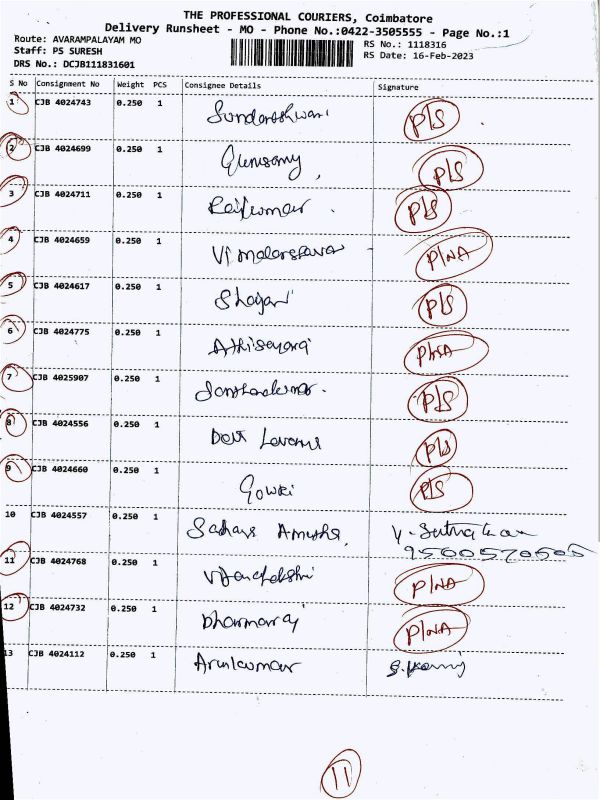 THE PROFESSIONAL COURIERS, Coimbatore
Delivery Runsheet - MO - Phone No.:0422-3505555 - Page No.:1
Route: AVARAMPALAYAM MO
Staff: PS SURESH
DRS No.: DCJB111831601
RS No.: 1118316
RS Date: 16-Feb-2023
S No Consignment No Weight PCS Consignee Details Signature
1 CJB 4024743 0.250 1 P/S
2 CJB 4024699 0.250 1 P/S
3 CJB 4024711 0.250 1 Rajkumar P/S
4 CJB 4024659 0.250 1 P/NA
5 CJB 4024617 0.250 1 P/S
6 CJB 4024775 0.250 1 P/NA
7 CJB 4025907 0.250 1 P/S
8 CJB 4024556 0.250 1 P/S
9 CJB 4024660 0.250 1 Gowri P/S
10 CJB 4024557 0.250 1
11 CJB 4024768 0.250 1 P/NA
12 CJB 4024732 0.250 1 Dharmaraj P/NA
13 CJB 4024112 0.250 1 Arulkumar
11